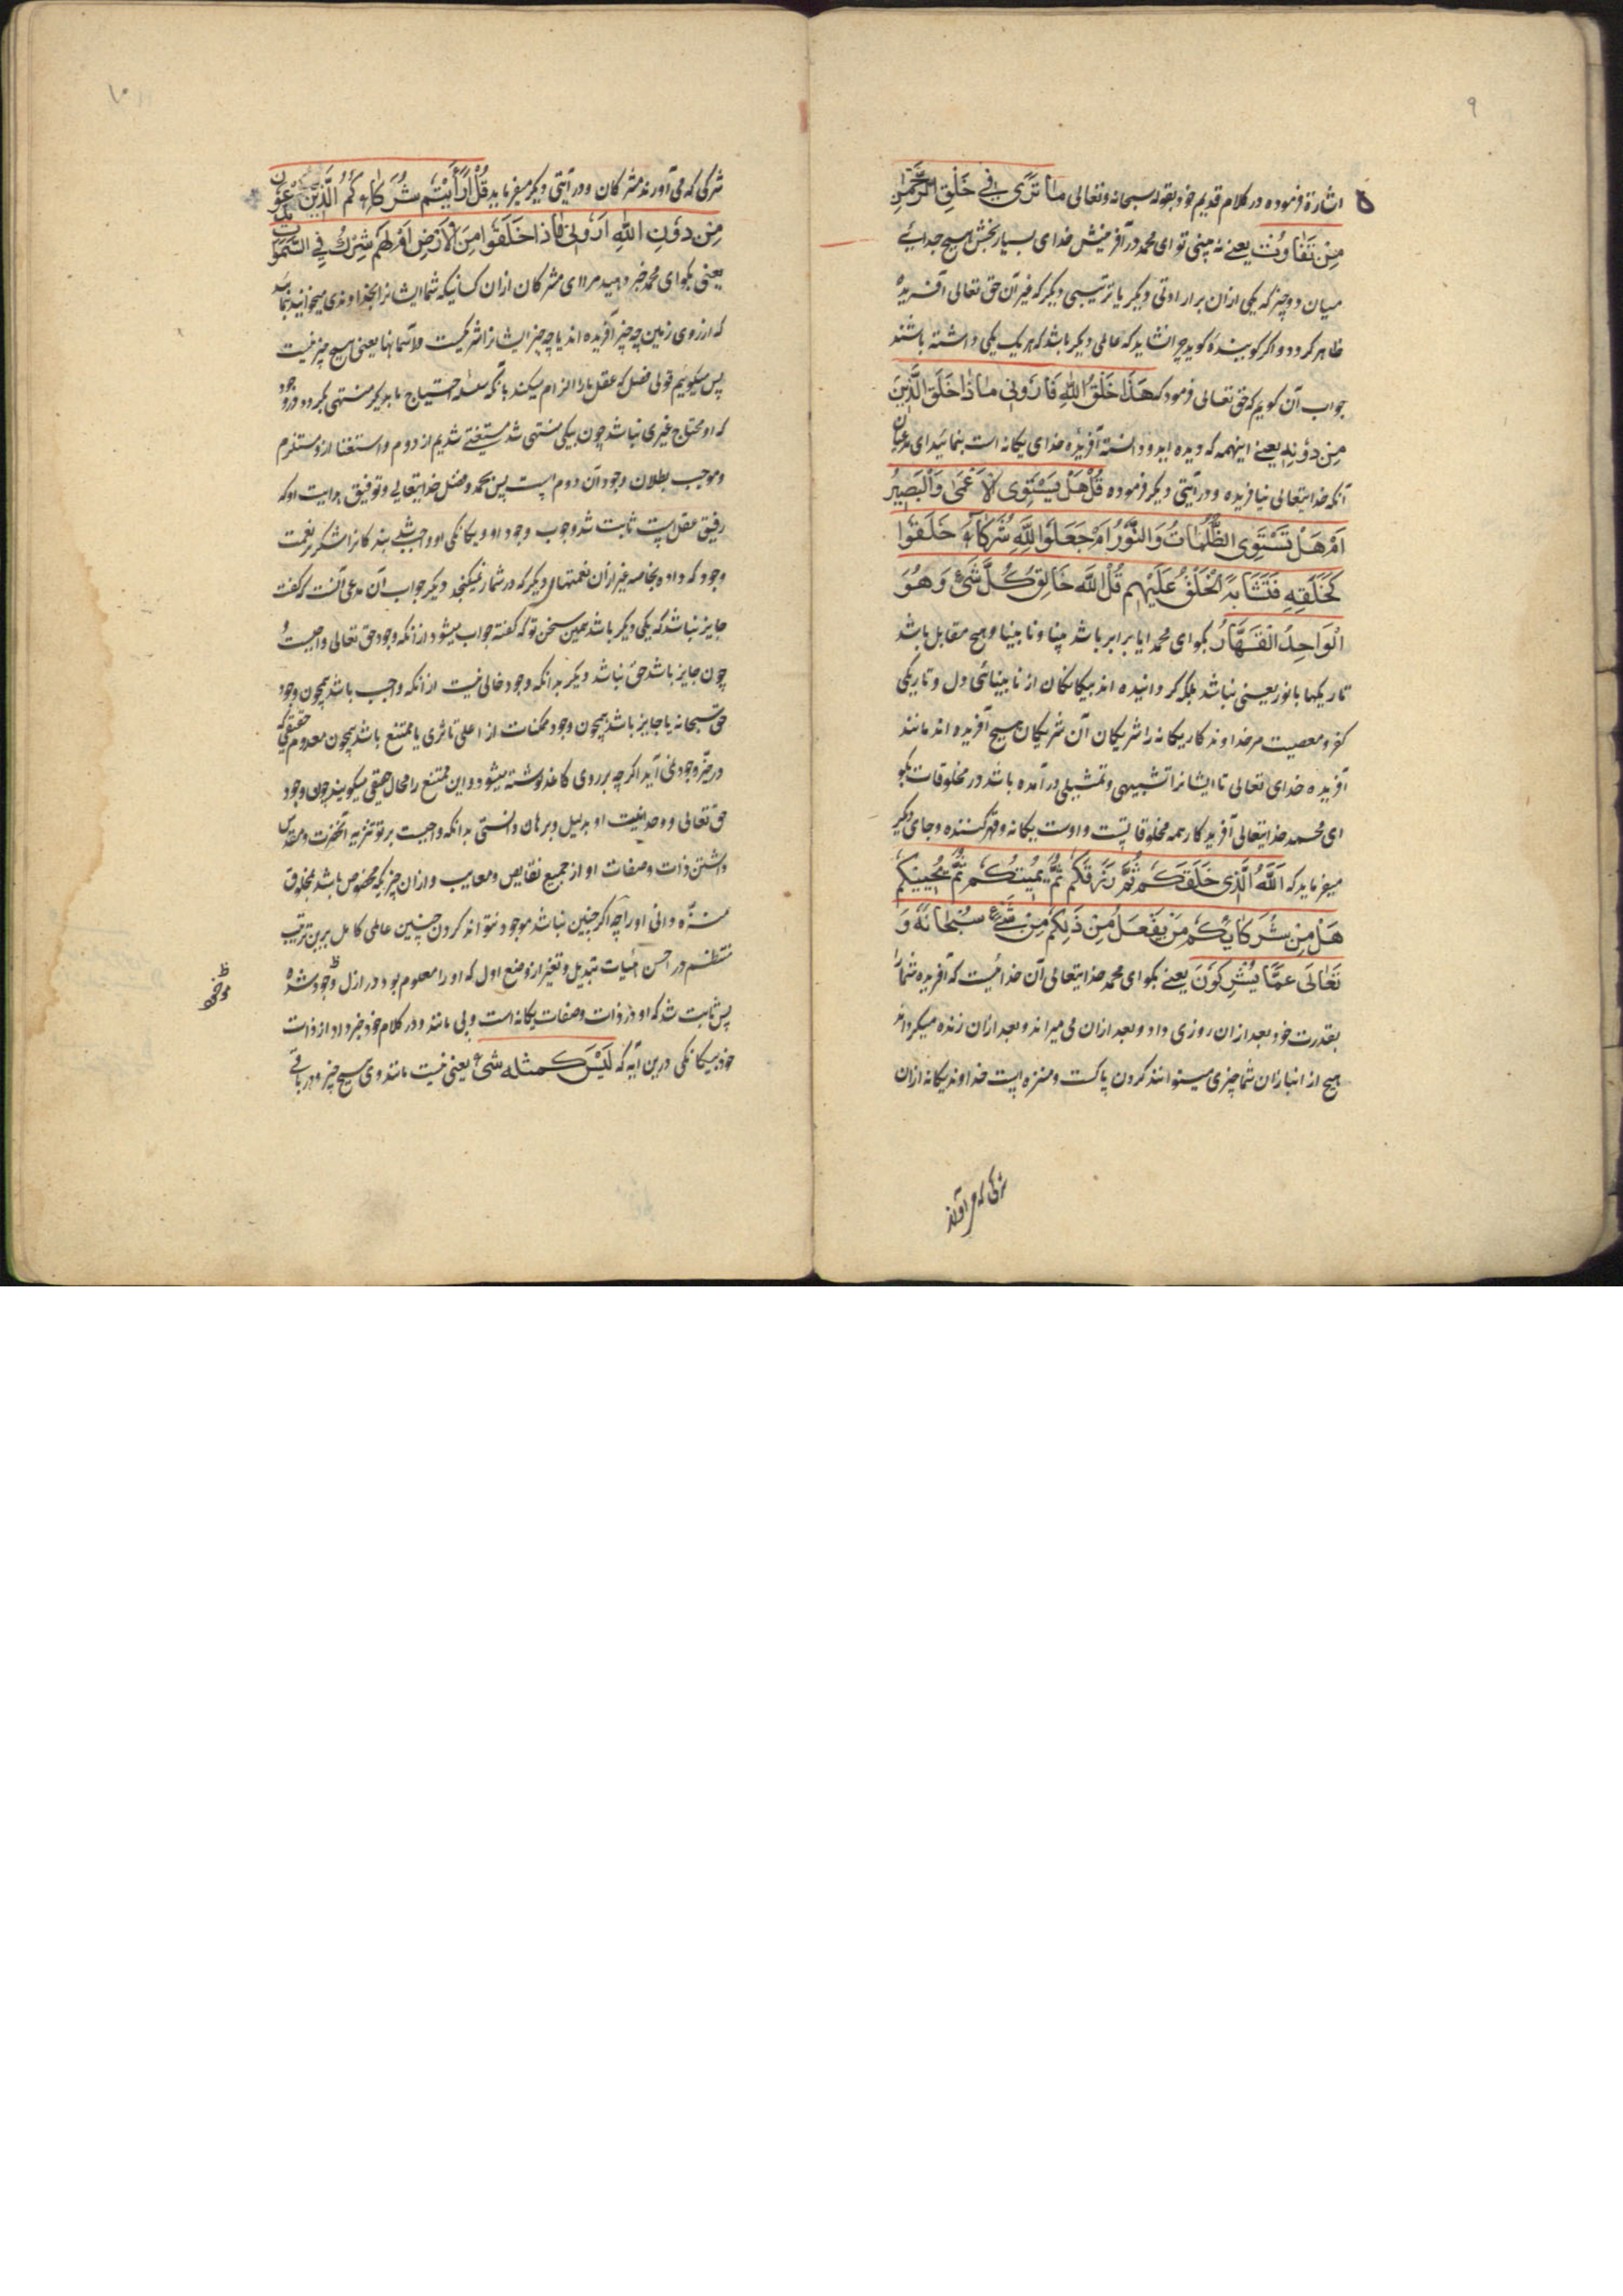 ۹
اشارة فرموده در کلام قدیم خود بقوله سبحانه وتعالی مَا تَرَی فِي خَلْقِ الرَّحْمٰنِ
مِنْ تَفَاوُتْ یعنے نه بینی تو ای محمد در آفرینش خدای بسیار بخش هیچ جدائے
میان دو چیز که یکی ازان برار اوتی دیگر یا ترتیبی دیگر که غیر آن حق تعالی آفریده
ظاهر کردد و اکر کوینده کوید چرا نشاید که عالمی دیگر باشد که هر یک یکی داشته باشند
جواب آن کویم که حق تعالی فرمود که هَذَا خَلْقُ اللّٰهِ فَأَرُونِي مَاذَا خَلَقَ الَّذِينَ
مِنْ دُونِهِ یعنے اینهمه که دیده اید و دانسته آفریده خدای یکانه است بنمائید ای مدعیان
آنکه خدایتعالی نیافریده و در آیتی دیکر فرموده قُلْ هَلْ يَسْتَوِى الْأَعْمَىٰ وَالْبَصِيرُ
اَمْ هَلْ تَسْتَوِى الظُّلُمَاتُ وَالنُّوْرُ اَمْ جَعَلُوا لِلّٰهِ شُرَكَاءَ خَلَقُوا
كَخَلْقِهِ فَتَشَابَهَ الْخَلْقُ عَلَيْهِم قُلِ اللّٰه خَالِقُ كُلِّ شَىْءٍ وَهُوَ
الْوَاحِدُ الْقَهَّارُ بکو ای محمد ایا برابر باشد بینا و نابینا و هیچ مقابل باشد
تاریکیها با نور یعنی نباشد بلکه کردانیده اند بیکانکان از نابینائی دل و تاریکی
کفر و معصیت مر خداوند کار یکانه را شریکان آن شریکان هیچ آفریده اند مانند
آفریده خدای تعالی تا ایشانرا تشبیهی و تمثیلی در آمده باشد در مخلوقات بکو
ای محمد خدایتعالی آفریدکار همه مخلوقاتست و اوست یکانه و قهر کننده و جای دیکر
میفرماید که اَللّٰهُ الَّذِى خَلَقَكُم ثُمَّ رَزَقَكُم ثُمَّ يُمِيتُكُم ثُمَّ يُحْيِيكُم
هَلْ مِنْ شُرَكَائِكُم مَنْ يَفْعَلُ مِنْ ذَلِكُم مِنْ شَيْءٍ سُبْحَانَهُ وَ
تَعَالَى عَمَّا يُشْرِكُونَ یعنے بکو ای محمد خدایتعالی آن خدائیست که آفریده شمارا
بقدرت خود بعد ازان روزی داد و بعد ازان می میراند و بعد ازان زنده میکرداند
هیچ از انبازان شما چیزی میتوانند کردن پاکست و منزه است خداوند یکانه ازان
شرکی که می آورند
۱۰
شرکی که می آورند مشرکان و در آیتی دیکر میفرماید قُلْ اَرَأَيْتُم شُرَكَاءَكُمُ الَّذِينَ تَدْعُوْنَ
مِنْ دُوْنِ اللّٰهِ اَرُوْنِى مَاذَا خَلَقُوا مِنَ الْأَرْضِ اَمْ لَهُم شِرْكٌ فِي السَّمٰوَاتِ
یعنی بکو ای محمد خبر دهید مر اای مشرکان ازان کسانیکه شما ایشانرا بخداوندی میخوانید بنمائید
که از روی زمین چه چیز آفریده اند یا چه چیز ایشانرا شرکیست در آسمانها یعنی هیچ چیز نیست
پس میکوییم قولی فصل که عقل مارا الزام میکند بآنکه سلسله احتیاج باید که منتهی کردد بوجود
که او محتاج غیری نباشد چون بیکی منتهی شد مستغنی شدیم از دوم و استغنا ازو مستلزم
و موجب بطلان وجود آن دوم است پس بحمد و فضل خدایتعالی و توفیق هدایت او که
رفیق عقل است ثابت شد وجوب وجود او و یکانکی او و واجب شد بندکانرا شکر بر نعمت
وجود که داده بخاصه غیر ازان نعمتهای دیکر که در شمار نیکنجد دیکر جواب آن مدعی آنست که کفت
جایز نباشد که یکی دیکر باشد همین سخن تو که کفته جواب میشود از آنکه وجود حق تعالی واجبست
چون جایز باشد حق نباشد دیکر بدانکه وجود خالی نیست از آنکه واجب باشد همچون وجود
حق سبحانه یا جایز باشد همچون وجود ممکنات از اعلی تا ثری یا ممتنع باشد همچون معدوم حقیقی که
در حیّز وجود نمی آید اکرچه بر روی کاغذ نوشته میشود و این ممتنع را محال حقیقی میکویند چون وجود
حق تعالی و وحدانیت او بدلیل و برهان دانستی بدانکه واجبست بر تو تنزیه آنحضرت و مقدس
داشتن ذات و صفات او از جمیع نقایص و معایب و ازان چیز که مخصوص باشد بمخلوق
منزّه دانی اورا چه اکر چنین نباشد موجود نتواند کردن چنین عالمی کامل برین ترتیب
منتظم در احسن هیئات بی تبدیل و تغیر از وضع اول که او را معلوم بود در ازل وجود شده
پس ثابت شد که او در ذات و صفات یکانه است و بی مانند و در کلام خود خبر داد از ذات
خود بیکانکی درین آیه که لَيْسَ كَمِثْلِهِ شَىْءٌ یعنی نیست مانند وی هیچ چیز و در باقے